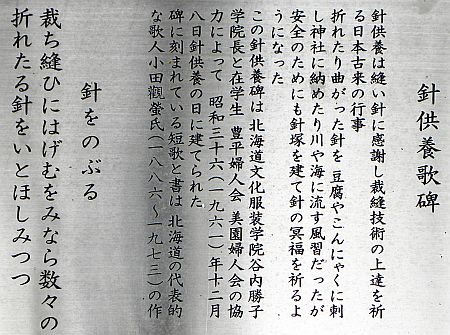 針供養歌碑
針供養は縫い針に感謝し裁縫技術の上達を祈
る日本古来の行事
折れたり曲がった針を 豆腐やこんにゃくに刺
し神社に納めたり川や海に流す風習だったが
安全のためにも針塚を建て針の冥福を祈るよ
うになった
この針供養碑は 北海道文化服装学院谷内勝子
学院長と在学生 豊平婦人会 美園婦人会の協
力によって 昭和三十六(一九六一)年十二月
八日針供養の日に建てられた
碑に刻まれている短歌と書は 北海道の代表的
な歌人小田觀螢氏(一八八六〜一九七三)の作
針をのぶる
裁ち縫ひにはげむをみなら数々の
折れたる針をいとほしみつつ